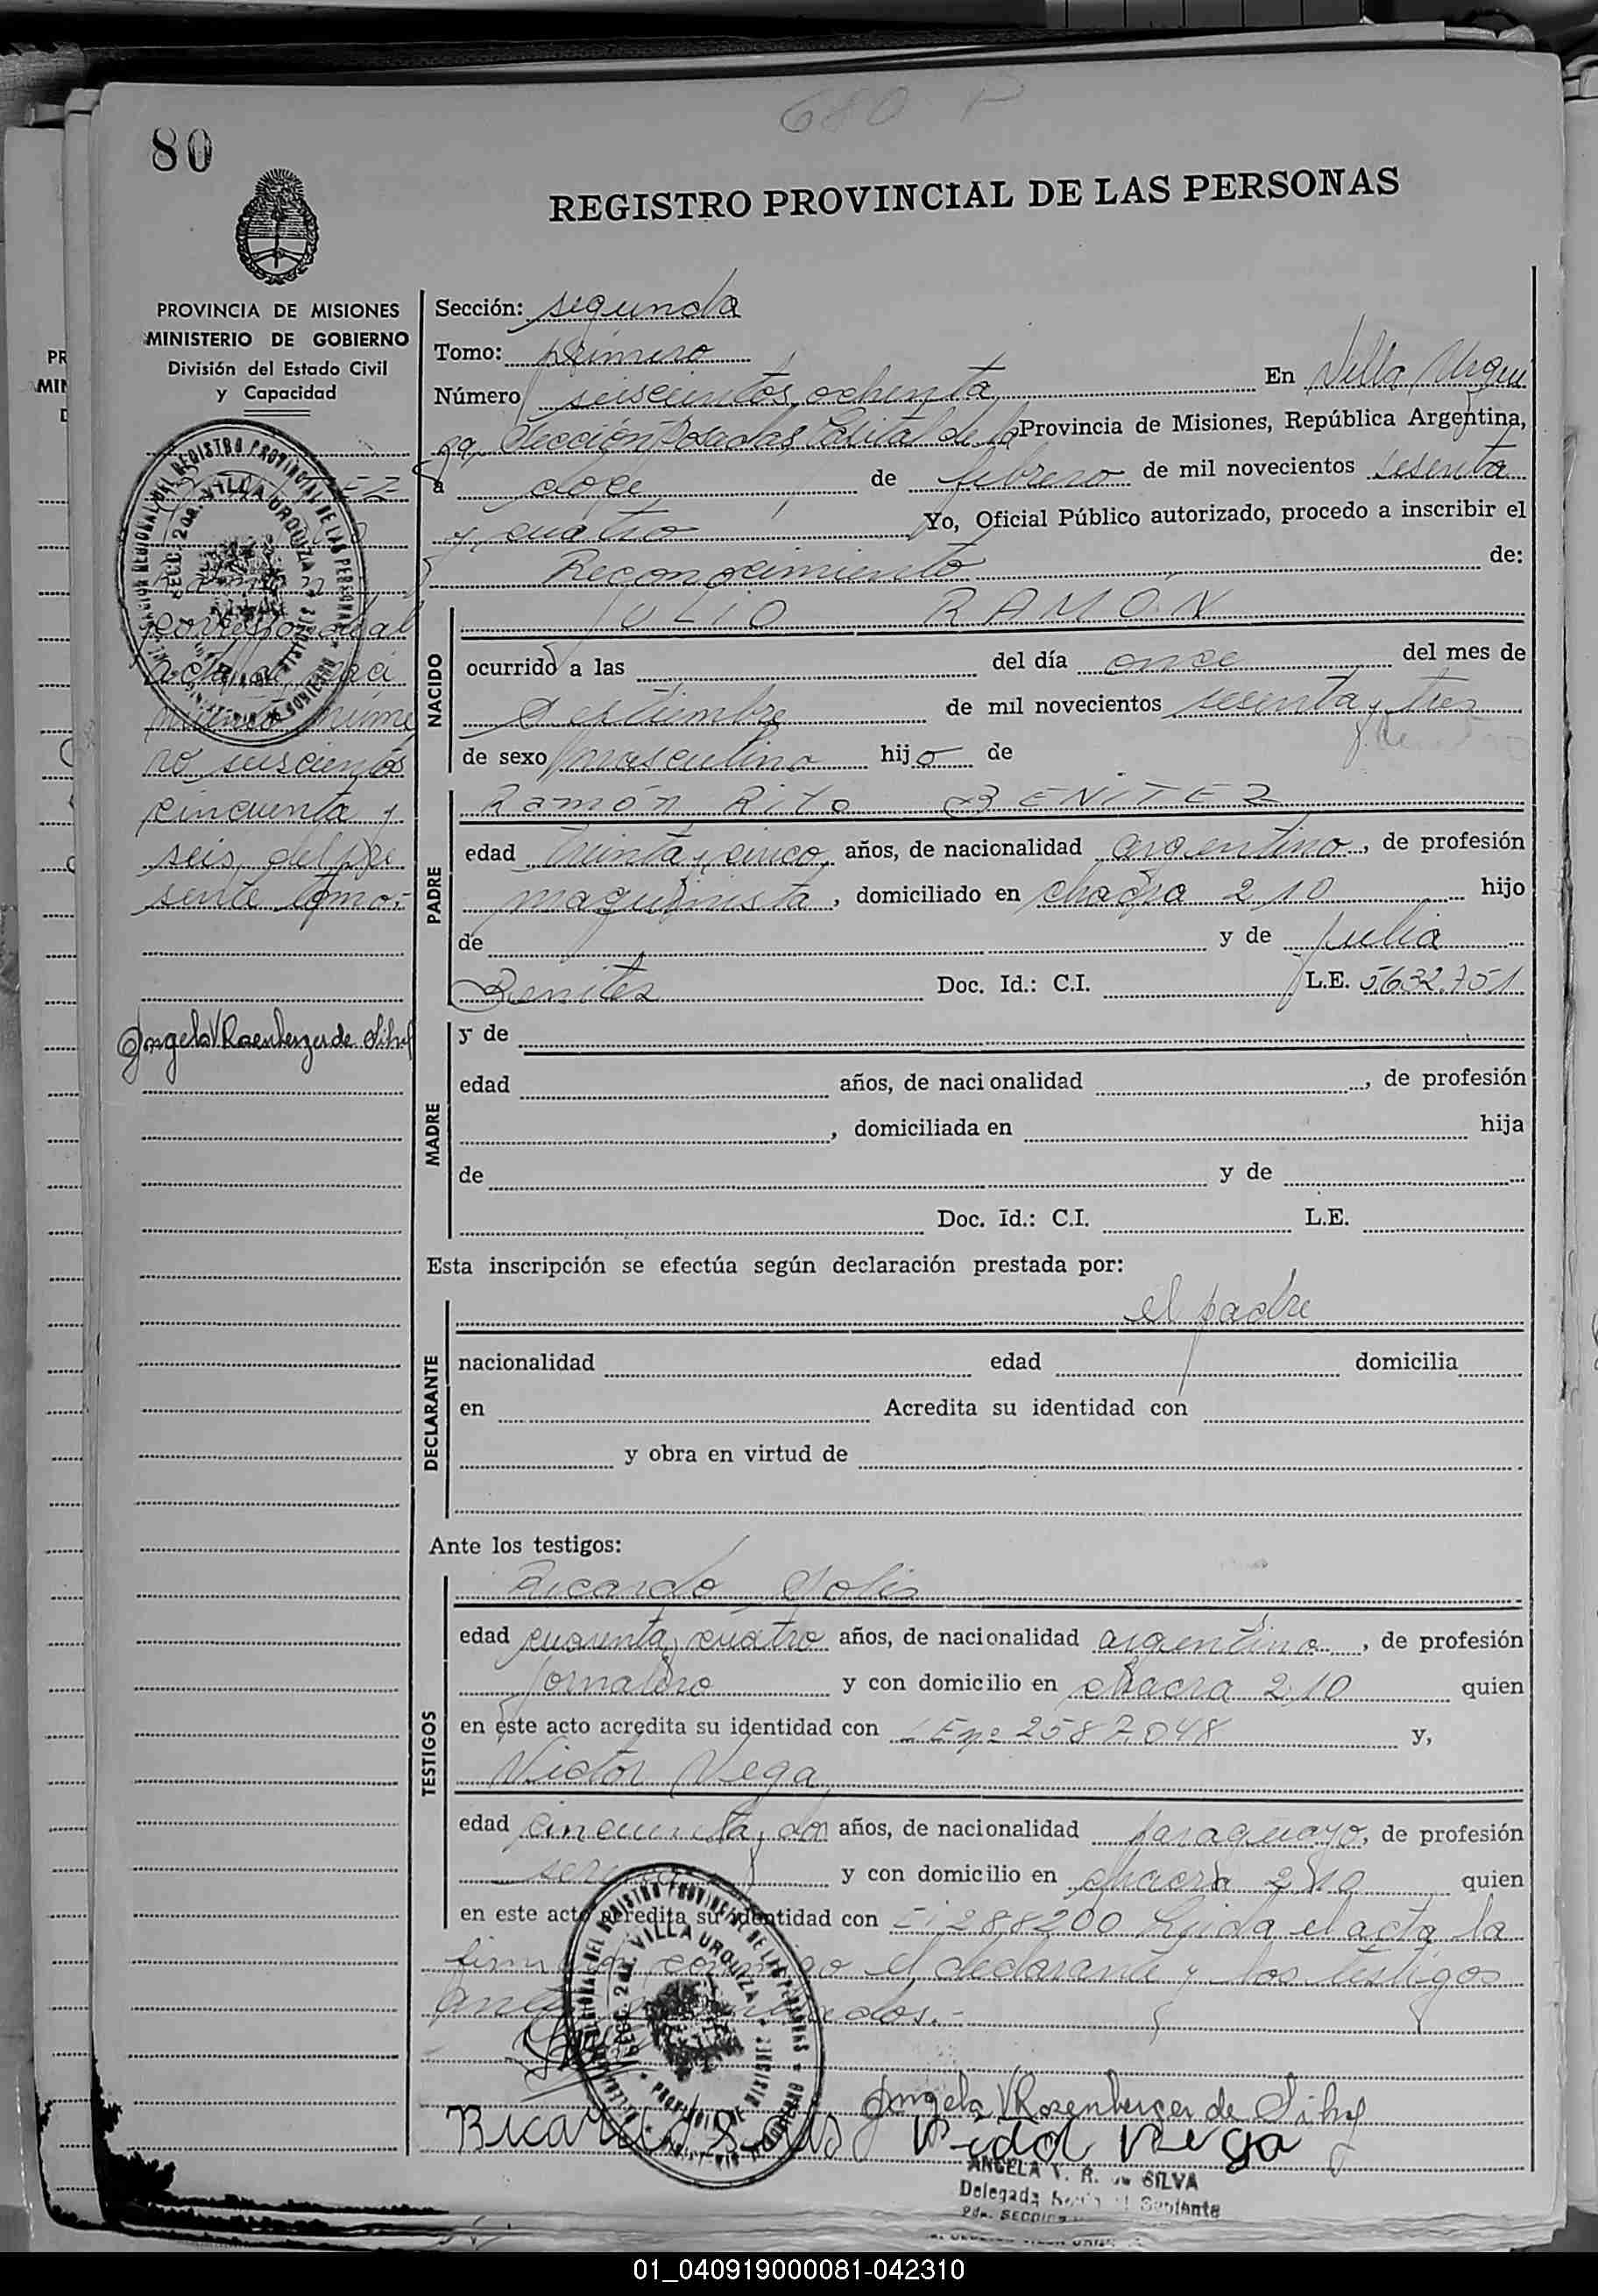 680 P
80
REGISTRO PROVINCIAL DE LAS PERSONAS
PROVINCIA DE MISIONES
MINISTERIO DE GOBIERNO
División del Estado Civil
y Capacidad
correspond al
acta de naci
miento núme
ro seiscientos
cincuenta y
seis del pre
sente tomo.-
Angela V Rosenberger de Silva
Sección: segunda
Tomo: primero
Número seiscientos ochenta En Villa Urqui
za, Sección Posadas Capital de la Provincia de Misiones, República Argentina,
a doce de febrero de mil novecientos sesenta
y cuatro Yo, Oficial Público autorizado, procedo a inscribir el
Reconocimiento de:
NACIDO
JULIO RAMÓN
ocurrido a las del día once del mes de
Setiembre de mil novecientos sesenta y tres
de sexo masculino hijo de
PADRE
Ramón Rito BENITEZ
edad treinta y cinco, años, de nacionalidad argentino, de profesión
maquinista, domiciliado en chacra 210 hijo
de y de Julia
Benitez Doc. Id.: C.I. L.E. 5632.751
MADRE
y de
edad años, de nacionalidad , de profesión
, domiciliada en hija
de y de
Doc. Id.: C.I. L.E.
Esta inscripción se efectúa según declaración prestada por:
DECLARANTE
el padre
nacionalidad edad domicilia
en Acredita su identidad con
y obra en virtud de
Ante los testigos:
TESTIGOS
Ricardo Solis
edad cuarenta y cuatro años, de nacionalidad argentino, de profesión
jornalero y con domicilio en chacra 210 quien
en este acto acredita su identidad con L Enº 2587.048 y,
Victor Vega
edad cincuenta y dos años, de nacionalidad paraguayo, de profesión
y con domicilio en chacra 210 quien
en este acto acredita su identidad con CI 288200 Leida el acta la
firman conmigo el declarante y los testigos
antes nombrados.-
Angela V Rosenberger de Silva
Ricardo Solis Victor Vega
ANGELA V. R. de SILVA
Delegada Suplente
2da. SECCION
REGISTRO PROVINCIAL DE LAS PERSONAS
SECC. 2da. VILLA URQUIZA
01_040919000081-042310